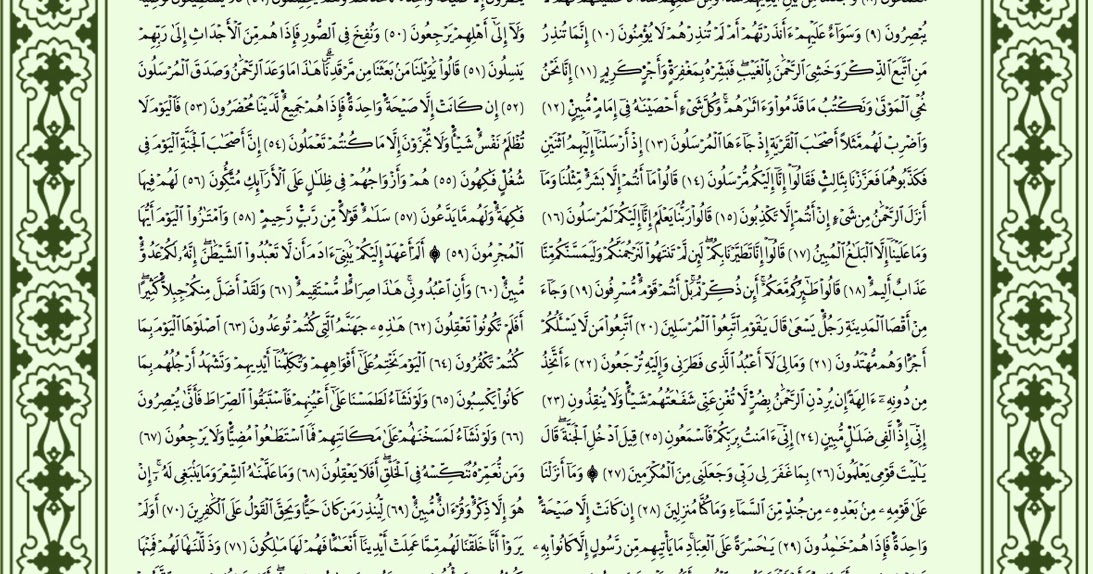 يُبْصِرُونَ (٩) وَسَوَآءٌ عَلَيْهِمْ ءَأَنذَرْتَهُمْ أَمْ لَمْ تُنذِرْهُمْ لَا يُؤْمِنُونَ (١٠) إِنَّمَا تُنذِرُ
مَنِ ٱتَّبَعَ ٱلذِّكْرَ وَخَشِىَ ٱلرَّحْمَٰنَ بِٱلْغَيْبِ ۖ فَبَشِّرْهُ بِمَغْفِرَةٍ وَأَجْرٍ كَرِيمٍ (١١) إِنَّا نَحْنُ
نُحْىِ ٱلْمَوْتَىٰ وَنَكْتُبُ مَا قَدَّمُوا۟ وَءَاثَٰرَهُمْ ۚ وَكُلَّ شَىْءٍ أَحْصَيْنَٰهُ فِىٓ إِمَامٍ مُّبِينٍ (١٢)
وَٱضْرِبْ لَهُم مَّثَلًا أَصْحَٰبَ ٱلْقَرْيَةِ إِذْ جَآءَهَا ٱلْمُرْسَلُونَ (١٣) إِذْ أَرْسَلْنَآ إِلَيْهِمُ ٱثْنَيْنِ
فَكَذَّبُوهُمَا فَعَزَّزْنَا بِثَالِثٍ فَقَالُوٓا۟ إِنَّآ إِلَيْكُم مُّرْسَلُونَ (١٤) قَالُوا۟ مَآ أَنتُمْ إِلَّا بَشَرٌ مِّثْلُنَا وَمَآ
أَنزَلَ ٱلرَّحْمَٰنُ مِن شَىْءٍ إِنْ أَنتُمْ إِلَّا تَكْذِبُونَ (١٥) قَالُوا۟ رَبُّنَا يَعْلَمُ إِنَّآ إِلَيْكُمْ لَمُرْسَلُونَ (١٦)
وَمَا عَلَيْنَآ إِلَّا ٱلْبَلَٰغُ ٱلْمُبِينُ (١٧) قَالُوٓا۟ إِنَّا تَطَيَّرْنَا بِكُمْ ۖ لَئِن لَّمْ تَنتَهُوا۟ لَنَرْجُمَنَّكُمْ وَلَيَمَسَّنَّكُم مِّنَّا
عَذَابٌ أَلِيمٌ (١٨) قَالُوا۟ طَٰٓئِرُكُم مَّعَكُمْ ۚ أَئِن ذُكِّرْتُم ۚ بَلْ أَنتُمْ قَوْمٌ مُّسْرِفُونَ (١٩) وَجَآءَ
مِنْ أَقْصَا ٱلْمَدِينَةِ رَجُلٌ يَسْعَىٰ قَالَ يَٰقَوْمِ ٱتَّبِعُوا۟ ٱلْمُرْسَلِينَ (٢٠) ٱتَّبِعُوا۟ مَن لَّا يَسْـَٔلُكُمْ
أَجْرًا وَهُم مُّهْتَدُونَ (٢١) وَمَا لِىَ لَآ أَعْبُدُ ٱلَّذِى فَطَرَنِى وَإِلَيْهِ تُرْجَعُونَ (٢٢) ءَأَتَّخِذُ
مِن دُونِهِۦٓ ءَالِهَةً إِن يُرِدْنِ ٱلرَّحْمَٰنُ بِضُرٍّ لَّا تُغْنِ عَنِّى شَفَٰعَتُهُمْ شَيْـًٔا وَلَا يُنقِذُونِ (٢٣)
إِنِّىٓ إِذًا لَّفِى ضَلَٰلٍ مُّبِينٍ (٢٤) إِنِّىٓ ءَامَنتُ بِرَبِّكُمْ فَٱسْمَعُونِ (٢٥) قِيلَ ٱدْخُلِ ٱلْجَنَّةَ ۖ قَالَ
يَٰلَيْتَ قَوْمِى يَعْلَمُونَ (٢٦) بِمَا غَفَرَ لِى رَبِّى وَجَعَلَنِى مِنَ ٱلْمُكْرَمِينَ (٢٧) ۞ وَمَآ أَنزَلْنَا
عَلَىٰ قَوْمِهِۦ مِنۢ بَعْدِهِۦ مِن جُندٍ مِّنَ ٱلسَّمَآءِ وَمَا كُنَّا مُنزِلِينَ (٢٨) إِن كَانَتْ إِلَّا صَيْحَةً
وَٰحِدَةً فَإِذَا هُمْ خَٰمِدُونَ (٢٩) يَٰحَسْرَةً عَلَى ٱلْعِبَادِ ۚ مَا يَأْتِيهِم مِّن رَّسُولٍ إِلَّا كَانُوا۟ بِهِۦ
وَلَآ إِلَىٰٓ أَهْلِهِمْ يَرْجِعُونَ (٥٠) وَنُفِخَ فِى ٱلصُّورِ فَإِذَا هُم مِّنَ ٱلْأَجْدَاثِ إِلَىٰ رَبِّهِمْ
يَنسِلُونَ (٥١) قَالُوا۟ يَٰوَيْلَنَا مَنۢ بَعَثَنَا مِن مَّرْقَدِنَا ۜ ۗ هَٰذَا مَا وَعَدَ ٱلرَّحْمَٰنُ وَصَدَقَ ٱلْمُرْسَلُونَ
(٥٢) إِن كَانَتْ إِلَّا صَيْحَةً وَٰحِدَةً فَإِذَا هُمْ جَمِيعٌ لَّدَيْنَا مُحْضَرُونَ (٥٣) فَٱلْيَوْمَ لَا
تُظْلَمُ نَفْسٌ شَيْـًٔا وَلَا تُجْزَوْنَ إِلَّا مَا كُنتُمْ تَعْمَلُونَ (٥٤) إِنَّ أَصْحَٰبَ ٱلْجَنَّةِ ٱلْيَوْمَ فِى
شُغُلٍ فَٰكِهُونَ (٥٥) هُمْ وَأَزْوَٰجُهُمْ فِى ظِلَٰلٍ عَلَى ٱلْأَرَآئِكِ مُتَّكِـُٔونَ (٥٦) لَهُمْ فِيهَا
فَٰكِهَةٌ وَلَهُم مَّا يَدَّعُونَ (٥٧) سَلَٰمٌ قَوْلًا مِّن رَّبٍّ رَّحِيمٍ (٥٨) وَٱمْتَٰزُوا۟ ٱلْيَوْمَ أَيُّهَا
ٱلْمُجْرِمُونَ (٥٩) ۞ أَلَمْ أَعْهَدْ إِلَيْكُمْ يَٰبَنِىٓ ءَادَمَ أَن لَّا تَعْبُدُوا۟ ٱلشَّيْطَٰنَ ۖ إِنَّهُۥ لَكُمْ عَدُوٌّ
مُّبِينٌ (٦٠) وَأَنِ ٱعْبُدُونِى ۚ هَٰذَا صِرَٰطٌ مُّسْتَقِيمٌ (٦١) وَلَقَدْ أَضَلَّ مِنكُمْ جِبِلًّا كَثِيرًا ۖ
أَفَلَمْ تَكُونُوا۟ تَعْقِلُونَ (٦٢) هَٰذِهِۦ جَهَنَّمُ ٱلَّتِى كُنتُمْ تُوعَدُونَ (٦٣) ٱصْلَوْهَا ٱلْيَوْمَ بِمَا
كُنتُمْ تَكْفُرُونَ (٦٤) ٱلْيَوْمَ نَخْتِمُ عَلَىٰٓ أَفْوَٰهِهِمْ وَتُكَلِّمُنَآ أَيْدِيهِمْ وَتَشْهَدُ أَرْجُلُهُم بِمَا
كَانُوا۟ يَكْسِبُونَ (٦٥) وَلَوْ نَشَآءُ لَطَمَسْنَا عَلَىٰٓ أَعْيُنِهِمْ فَٱسْتَبَقُوا۟ ٱلصِّرَٰطَ فَأَنَّىٰ يُبْصِرُونَ
(٦٦) وَلَوْ نَشَآءُ لَمَسَخْنَٰهُمْ عَلَىٰ مَكَانَتِهِمْ فَمَا ٱسْتَطَٰعُوا۟ مُضِيًّا وَلَا يَرْجِعُونَ (٦٧)
وَمَن نُّعَمِّرْهُ نُنَكِّسْهُ فِى ٱلْخَلْقِ ۖ أَفَلَا يَعْقِلُونَ (٦٨) وَمَا عَلَّمْنَٰهُ ٱلشِّعْرَ وَمَا يَنۢبَغِى لَهُۥٓ ۚ إِنْ
هُوَ إِلَّا ذِكْرٌ وَقُرْءَانٌ مُّبِينٌ (٦٩) لِّيُنذِرَ مَن كَانَ حَيًّا وَيَحِقَّ ٱلْقَوْلُ عَلَى ٱلْكَٰفِرِينَ (٧٠) أَوَلَمْ
يَرَوْا۟ أَنَّا خَلَقْنَا لَهُم مِّمَّا عَمِلَتْ أَيْدِينَآ أَنْعَٰمًا فَهُمْ لَهَا مَٰلِكُونَ (٧١) وَذَلَّلْنَٰهَا لَهُمْ فَمِنْهَا